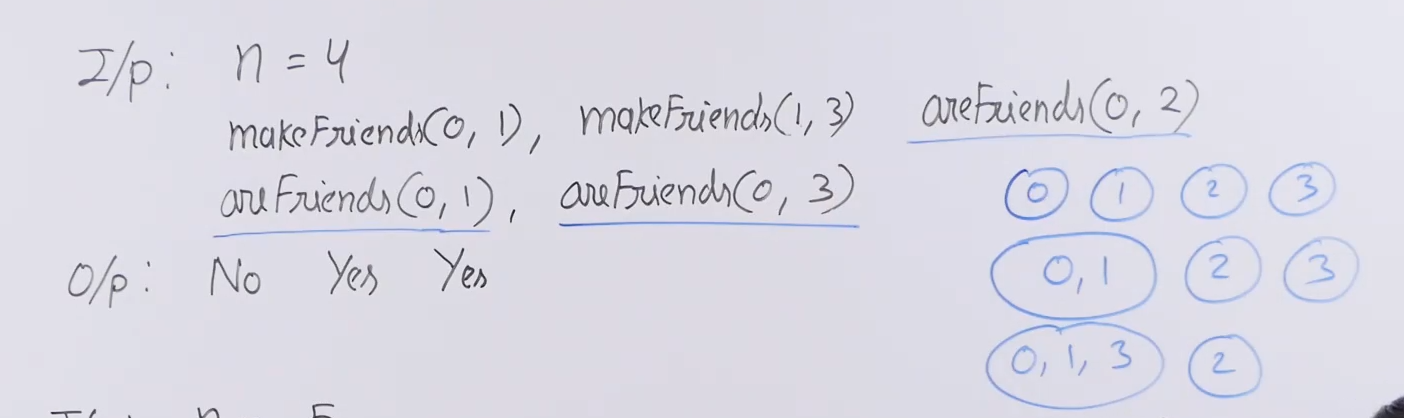 I/p: n = 4
makeFriends(0, 1), makeFriends(1, 3) areFriends(0, 2)
areFriends(0, 1), areFriends(0, 3)
O/p: No Yes Yes
0 1 2 3
0, 1 2 3
0, 1, 3 2